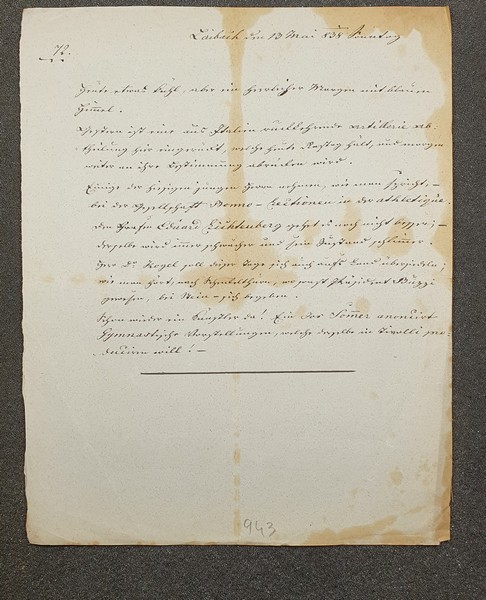 Laibach den 13 Mai 838 Sonntag
72.
Heute etwas kühl, aber ein herrlicher Morgen mit blauem
Himmel.
Gestern ist eine aus Italien rückkehrende Artillerie Ab-
theilung hier eingerückt, welche heute Rasttag hält, und morgen
weiter an ihre Bestimmung abrücken wird.
Einige der hiesigen jungen Herren nehmen, wie man spricht, –
bei der Gesellschaft Lectionen in der athletique.
Dem Grafen Eduard Lichtenberg geht es noch nicht besser; –
derselbe wird immer schwächer und sein Zustand schlimmer.
Herr Dr. Kogel soll dieser Tage sich auch aufs Land übersiedeln;
wie man hört, nach, wo sonst Präsident Buzzi
gewesen, bei Stein – sich begeben.
Schon wieder ein Künstler da! Ein Herr Sommer anoncirt
Gymnastische Vorstellungen, welche derselbe in Tivolli pro-
duciren will! –
943